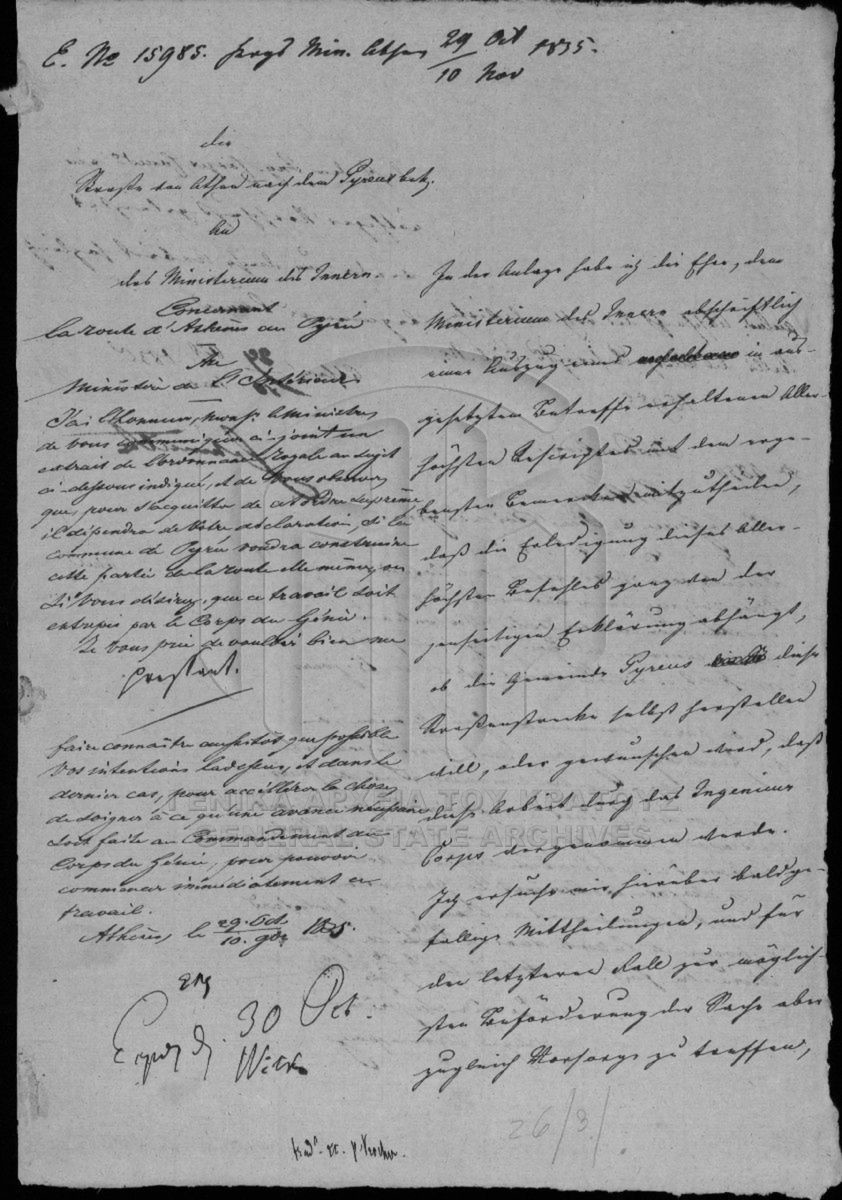 E. No 15985. Krgs Min. Athen 29 Oct / 10 Nov 1835.
die
Straße von Athen nach dem Pyreus betr.
An
das Ministerium des Innern.
Concernant
la route d'Athènes au Pyrée
Au
Ministère de l'Intérieur.
J'ai l'honneur, Monsr. le Ministre,
de vous communiquer ci-joint un
extrait de l'ordonnance Royale au sujet
ci-dessous indiqué, et de vous observer
que, pour s'acquitter de cet ordre suprême,
il dépendra de Votre déclaration, si la
commune de Pyrée voudra construire
cette partie de la route elle même, ou
si Vous désirez, que ce travail soit
entrepris par le Corps du Génie.
Je vous prie de vouloir bien me
pressant.
faire connaître aussitôt que possible
Vos intentions là dessus, et dans le
dernier cas, pour accélérer la chose,
de soigner à ce qu'une avance nécessaire
soit faite au Commandement du
Corps du Génie, pour pouvoir
commencer immédiatement ce
travail.
Athènes, le 29. Oct. / 10. 9br. 1835.
30 Oct.
In der Anlage habe ich die Ehre, dem
Ministerium des Innern abschriftlich
einen Auszug eines in rubr-
gesetztem Betreffe erhaltenen Aller-
höchsten Rescriptes mit dem erge-
bensten Bemerken mitzutheilen,
daß die Erledigung dieses Aller-
höchsten Befehles ganz von der
jenseitigen Erklärung abhängt,
ob die Gemeinde Pyreus diese
Straßenstrecke selbst herstellen
will, oder gewünschen wird, daß
diese Arbeit durch das Ingenieur
Corps vorgenommen werde.
Ich ersuche mir hierüber baldge-
fällige Mittheilungen, und für
den letzteren Fall zur möglich-
sten Beförderung der Sache aber
zugleich Vorsorge zu treffen,
26/3/
ΓΕΝΙΚΑ ΑΡΧΕΙΑ ΤΟΥ ΚΡΑΤΟΥΣ
GENERAL STATE ARCHIVES